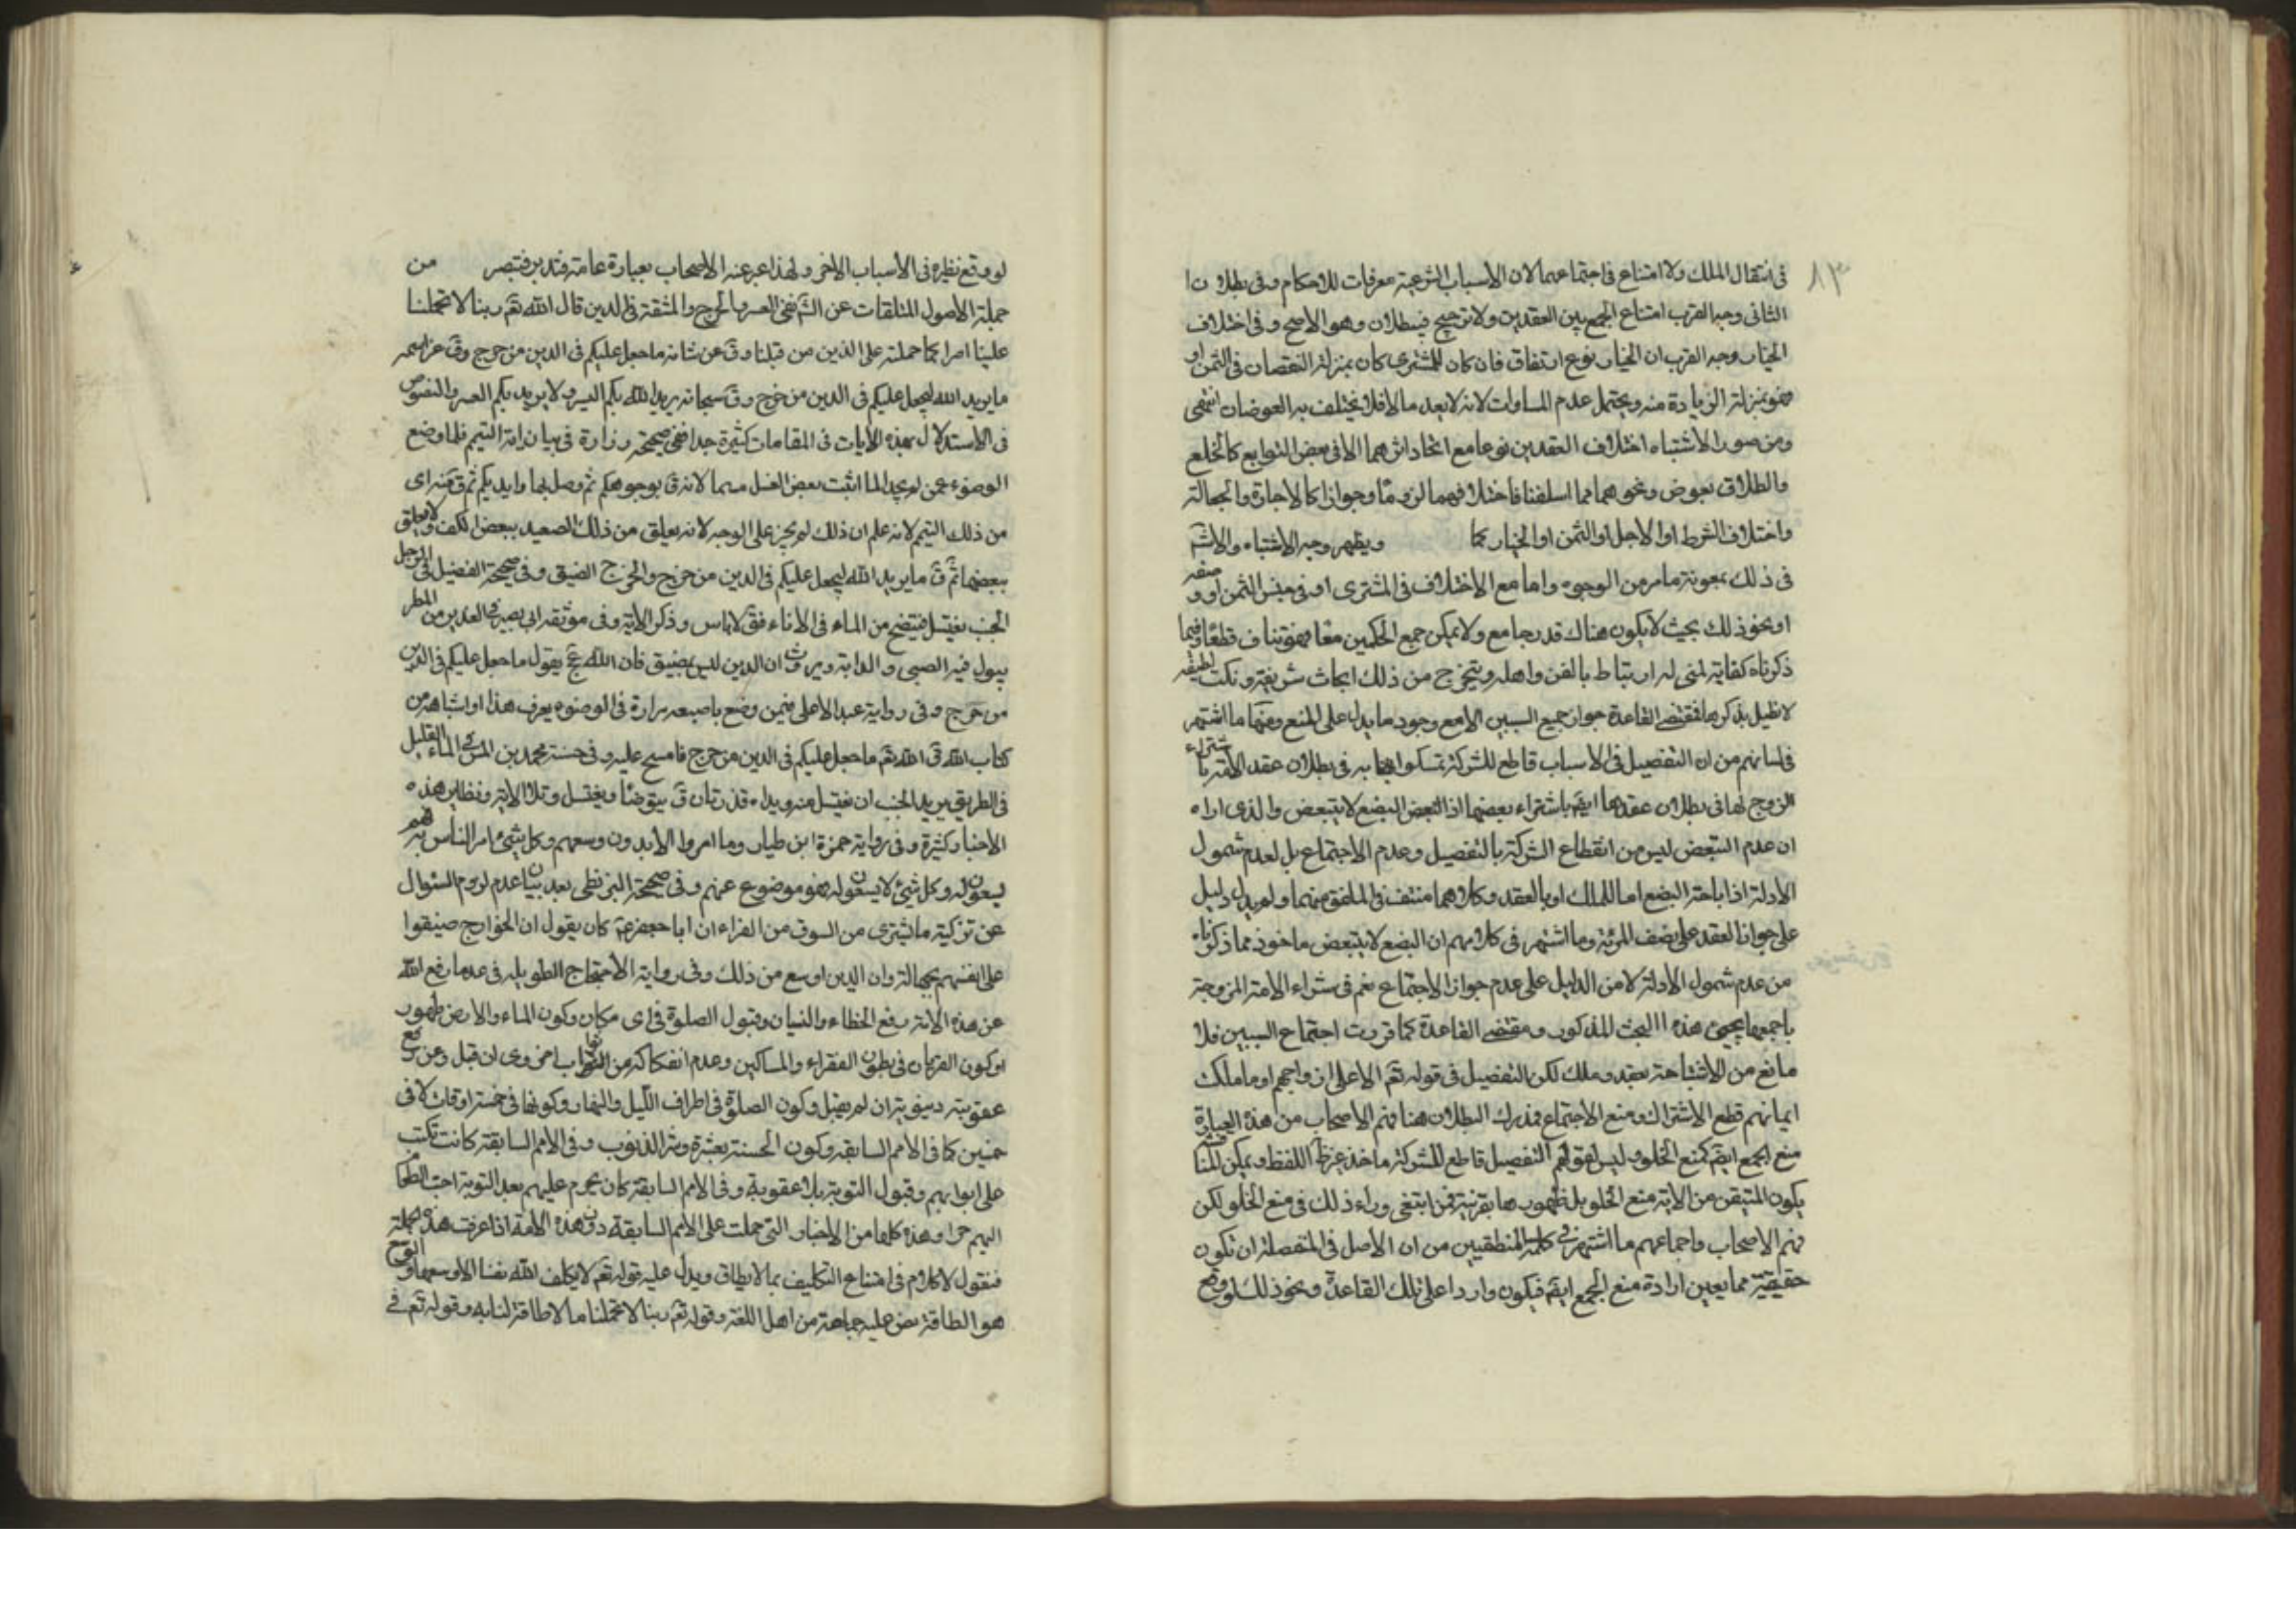 ٨٣
في انتقال الملك ولا امتناع في اجتماعهما لان الاسباب الشرعية معرفات للاحكام وفي بطلان
الثاني وجه القرب امتناع الجمع بين العقدين ولا ترجيح فيبطلان وهو الاصح وفي اختلاف
الخيار وجه القرب ان الخيار نوع ارتفاق فان كان للمشتري كان بمنزلة النقصان في الثمن او
فهو بمنزلة الزيادة منه ويحتمل عدم المساوات لانه لا يعد مالا فلا يختلف به العوضان انتهى
ومن صور الاشتباه اختلاف العقدين نوعا مع اتحاد اثرهما الا في بعض التوابع كالخلع
والطلاق بعوض ونحوهما مما اسلفنا فاختلافهما لزوما وجوازا كالاجارة والجعالة
واختلاف الشرط او الاجل او الثمن او الخيار كما ويظهر وجه الاشتباه والا
في ذلك بمعونة ما مر من الوجوه واما مع الاختلاف في المشتري او في جنس الثمن او وصفه
او نحو ذلك بحيث لا يكون هناك قدر جامع ولا يمكن جمع الحكمين معا فهو تناف قطعا وفيما
ذكرناه كفاية لمن له ارتباط بالفن واهله ويتخرج من ذلك ابحاث شريفة ونكت لطيفة
لا نطيل بذكرها فمقتضى القاعدة جواز جميع السببين الا مع وجود ما يدل على المنع ومنها ما اشتهر
في لسانهم من ان التفصيل في الاسباب قاطع للشركة تمسكوا به في بطلان عقد الامة باشتراء
الزوج لها في بطلان عقدها ايضا باشتراء بعضها اذ البضع لا يتبعض والذي اراه
ان عدم التبعض ليس من انقطاع الشركة بالتفصيل وعدم الاجتماع بل لعدم شمول
الادلة اذ اباحة البضع اما للملك او بالعقد وكلاهما منتف في الملفق منهما ولم يدل دليل
على جواز العقد على نصف المرئة وما اشتهر في كلامهم ان البضع لا يتبعض ماخوذ مما ذكرناه
من عدم شمول الادلة لا من الدليل على عدم جواز الاجتماع نعم في شراء الامة المزوجة
باجمعها يجيئ هذه البحث المذكور ومقتضى القاعدة كما قررت اجتماع السببين فلا
مانع من بعقد وملك لكن التفصيل في قوله تع الا على ازواجهم او ما ملكت
ايمانهم قطع الاشتراك ومنع الاجتماع فمدرك البطلان هنا فهم الاصحاب من هذه العبارة
منع الجمع ايضا كمنع الخلو وليس لقولهم التفصيل قاطع للشركة ماخذ غير ظ اللفظ ويمكن
يكون المتيقن من الاية منع الخلو بل ظهورها بقرينة فمن ابتغى وراء ذلك في منع الخلو لكن
فهم الاصحاب واجماعهم ما اشتهر في كلمة المنطقيين من ان الاصل في المنفصلة ان تكون
حقيقية مما يعين ارادة منع الجمع ايضا فيكون واردا على تلك القاعدة ونحو ذلك
لو وقع نظيره في الاسباب الاخر ولهذا عبر عنه الاصحاب بعبارة عامة فتدبر فتبصر من
جملة الاصول المتلقات عن الشرع نفي العسر والحرج والمشقة في الدين قال الله تع ربنا لا تحملنا
علينا اصرا كما حملته على الذين من قبلنا وق عن شانه ما جعل عليكم في الدين من حرج وق عز اسمه
ما يريد الله ليجعل عليكم في الدين من حرج وق سبحانه يريد الله بكم اليسر ولا يريد بكم العسر والنصوص
في الاستدلال بهذه الايات في المقامات كثيرة جدا ففي صحيحة زرارة في بيان اية التيمم فلما وضع
الوضوء عمن لم يجد الماء اثبت بعض الغسل مسحا لانه ق بوجوهكم ثم وصل بها وايديكم ثم ق منه اي
من ذلك التيمم لانه علم ان ذلك لم يجر على الوجه لانه يعلق من ذلك الصعيد ببعض الكف ولا يعلق
ببعضها ثم ق ما يريد الله ليجعل عليكم في الدين من حرج والحرج الضيق وفي صحيحة الفضيل في الرجل
الجنب يغتسل فينتضح من الماء في الاناء فق لا باس وذكر الاية وفي موثقة ابي بصير في الغدير من المطر
يبول فيه الصبي والدابة ويروث ان الدين ليس بضيق فان الله عج يقول ما جعل عليكم في الدين
من حرج وفي رواية عبد الاعلى فيمن وضع باصبعه مرارة في الوضوء يعرف هذا او اشباهه من
كتاب الله ق الله تع ما جعل عليكم في الدين من حرج فامسح عليه وفي حسنة محمد بن الميسر في الماء القليل
في الطريق يريد الجنب ان يغتسل منه ويداه قذرتان ق يتوضأ ويغتسل وتلا الاية ونظاير هذه
الاخبار كثيرة وفي رواية حمزة ابن طيار وما امروا الا بدون وسعهم وكل شيئ امر الناس به فهم
يسعون له وكل شيئ لا يسعون له فهو موضوع عنهم وفي صحيحة البزنطي بعد بيان عدم لزوم السئوال
عن تزكية ما يشترى من السوق من الفراء ان ابا جعفر ع كان يقول ان الخوارج ضيقوا
على انفسهم بجهالة وان الدين اوسع من ذلك وفي رواية الاحتجاج الطويلة في عد ما رفع الله
عن هذه الامة رفع الخطاء والنسيان وقبول الصلوة في اي مكان وكون الماء والارض طهور
او كون القربان في بطون الفقراء والمساكين وعدم انفكاكه من الثواب اخروي ان قبل وعن رفع
عقوبته دنيوية ان لم يقبل وكون الصلوة في اطراف الليل والنهار وكونها في خمسة اوقات لا في
خمسين كما في الامم السابقة وكون الحسنة بعشرة وستر الذنوب وفي الامم السابقة كانت تكتب
على ابوابهم وقبول التوبة بلا عقوبة وفي الامم السابقة كان يحرم عليهم بعد التوبة احب الطعام
اليهم حرا وهذه كلها من الاخبار التي حملت على الامم السابقة دون هذه الامة اذا عرفت هذه الجملة
فنقول لا كلام في امتناع التكليف بما لا يطاق ويدل عليه قوله تع لا يكلف الله نفسا الا وسعها والوسع
هو الطاقة نص عليه جماعة من اهل اللغة وقوله تع ربنا لا تحملنا ما لا طاقة لنا به وقوله تع في